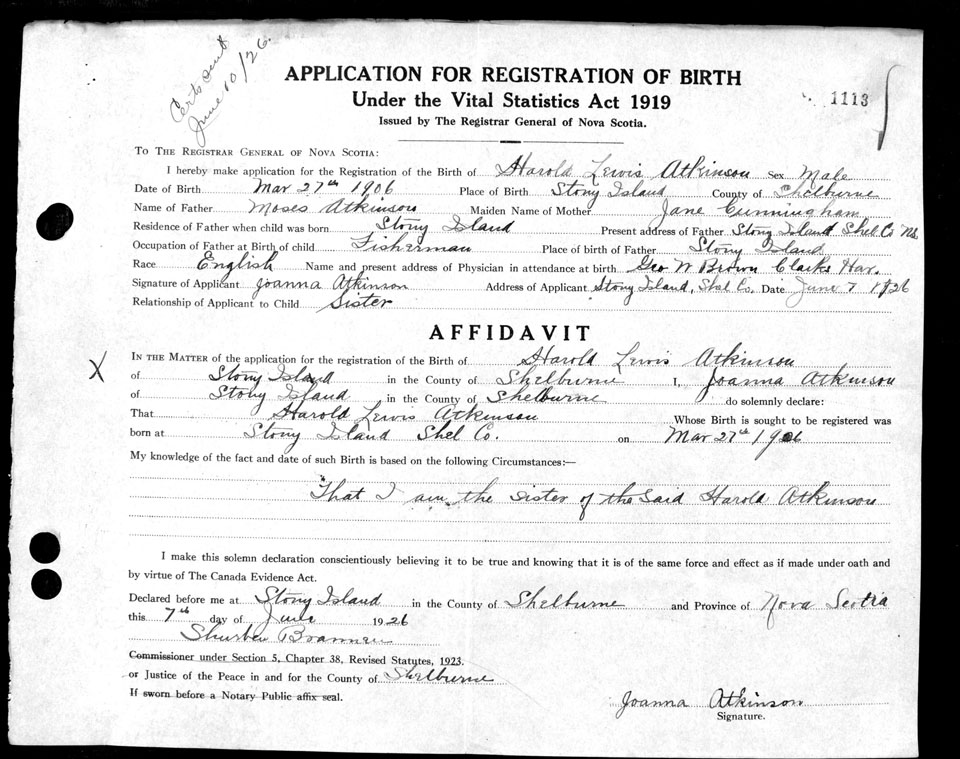 Certs sent
June 10/26.
APPLICATION FOR REGISTRATION OF BIRTH
Under the Vital Statistics Act 1919
1113
Issued by The Registrar General of Nova Scotia.
TO THE REGISTRAR GENERAL OF NOVA SCOTIA:
I hereby make application for the Registration of the Birth of Harold Lewis Atkinson Sex Male
Date of Birth Mar 27th 1906 Place of Birth Stony Island County of Shelburne
Name of Father Moses Atkinson Maiden Name of Mother Jane Cunningham
Residence of Father when child was born Stony Island Present address of Father Stony Island Shel Co NS.
Occupation of Father at Birth of child Fisherman Place of birth of Father Stony Island
Race English Name and present address of Physician in attendance at birth Geo W Brown Clarks Har.
Signature of Applicant Joanna Atkinson Address of Applicant Stony Island, Shel Co. Date June 7 1926
Relationship of Applicant to Child Sister
AFFIDAVIT
X
IN THE MATTER of the application for the registration of the Birth of Harold Lewis Atkinson
of Stony Island in the County of Shelburne I, Joanna Atkinson
of Stony Island in the County of Shelburne do solemnly declare:
That Harold Lewis Atkinson Whose Birth is sought to be registered was
born at Stony Island Shel Co. on Mar 27th 1906
My knowledge of the fact and date of such Birth is based on the following Circumstances:—
That I am the sister of the said Harold Atkinson
I make this solemn declaration conscientiously believing it to be true and knowing that it is of the same force and effect as if made under oath and
by virtue of The Canada Evidence Act.
Declared before me at Stony Island in the County of Shelburne and Province of Nova Scotia
this 7th day of June 1926
Commissioner under Section 5, Chapter 38, Revised Statutes, 1923.
or Justice of the Peace in and for the County of Shelburne
If sworn before a Notary Public affix seal.
Joanna Atkinson
Signature.